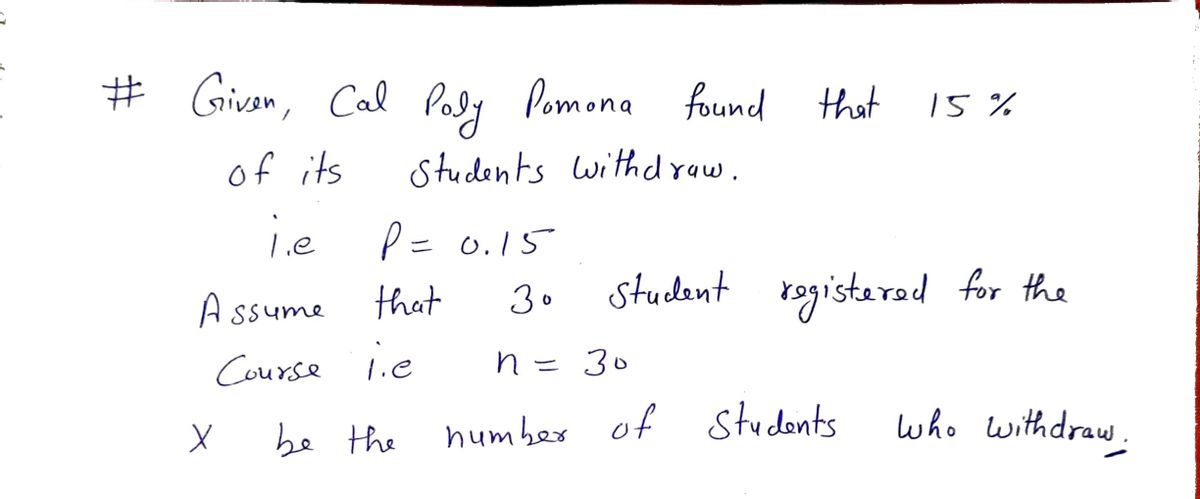 # Given, Cal Poly Pomona found that 15 %
of its students withdraw.
i.e P = 0.15
Assume that 30 student registered for the
Course i.e n = 30
X be the number of students who withdraw.